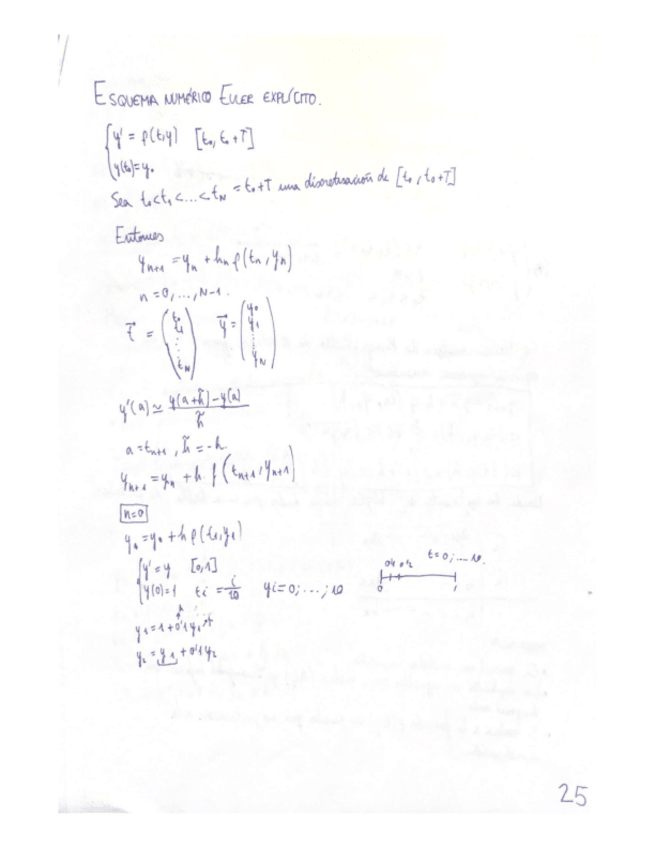 ESQUEMA NUMÉRICO EULER EXPLÍCITO.
y' = f(t,y) [t0, t0+T]
y(t0)=y0
Sea t0<t1<...<tN = t0+T una discretización de [t0, t0+T]
Entonces
yn+1 = yn + hn f(tn, yn)
n = 0, ..., N-1.
t = (t0 t1 ⋮ tN) y = (y0 y1 ⋮ yN)
y'(a) ≃ (y(a+h̃)-y(a))/h̃
a = tn+1, h̃ = -h
yn+1 = yn + h f(tn+1, yn+1)
n=0
= y0 + h f(t1,y1)
y' = y [0,1]
y(0)=1 ti = i/10 yi=0; ...; 10
0 0'1 0'2 1 t=0; ... 10.
y1 = 1+0'1y1
y2 = y1 + 0'1y2
25